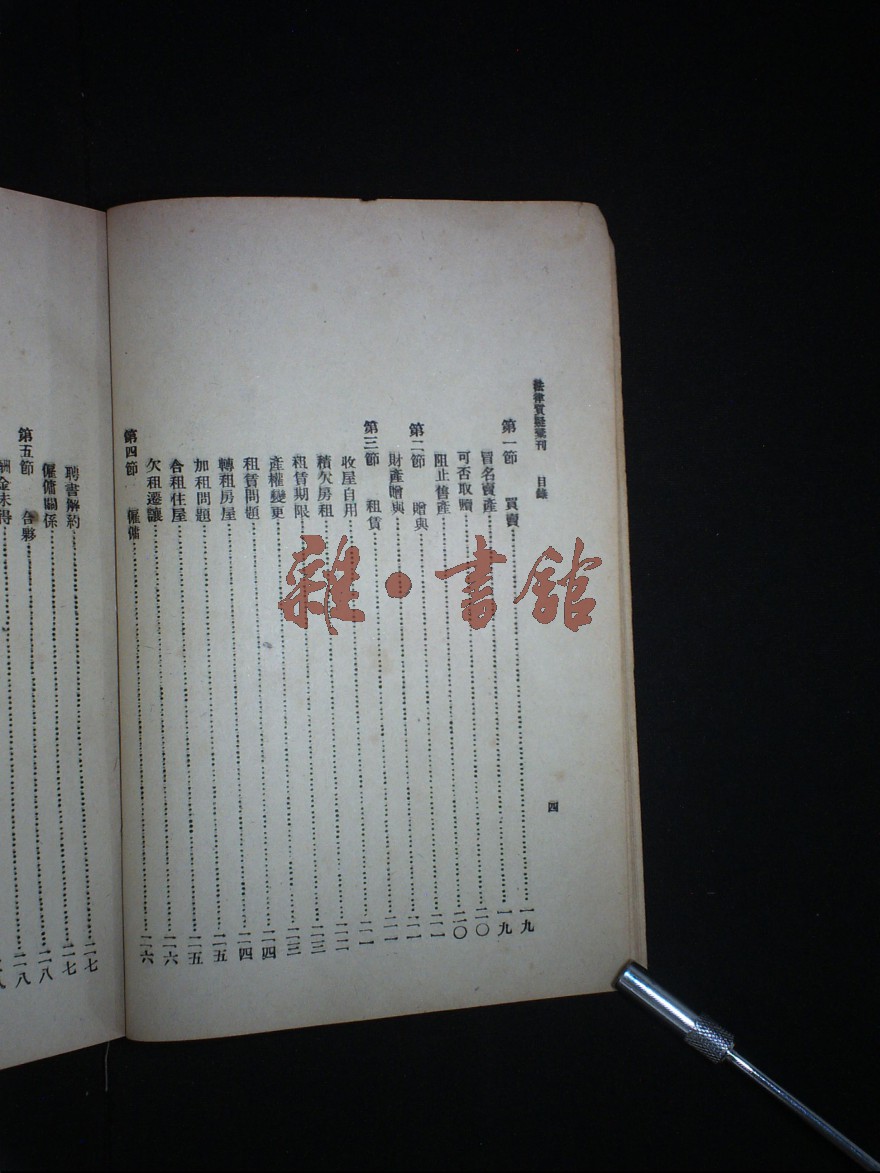 法律質疑彙刊 目錄 四
第一節 買賣……一九
冒名賣產……一九
可否取贖……二〇
阻止售產……二〇
第二節 贈與……二一
財產贈與……二一
第三節 租賃……二一
收屋自用……二一
積欠房租……二二
租賃期限……二三
產權變更……二三
租賃問題……二四
轉租房屋……二四
加租問題……二五
合租住屋……二五
欠租遷讓……二六
第四節 僱傭……二六
聘書解約……二七
僱傭關係……二七
第五節 合夥……二八
酬金未得……二八
雜·書館